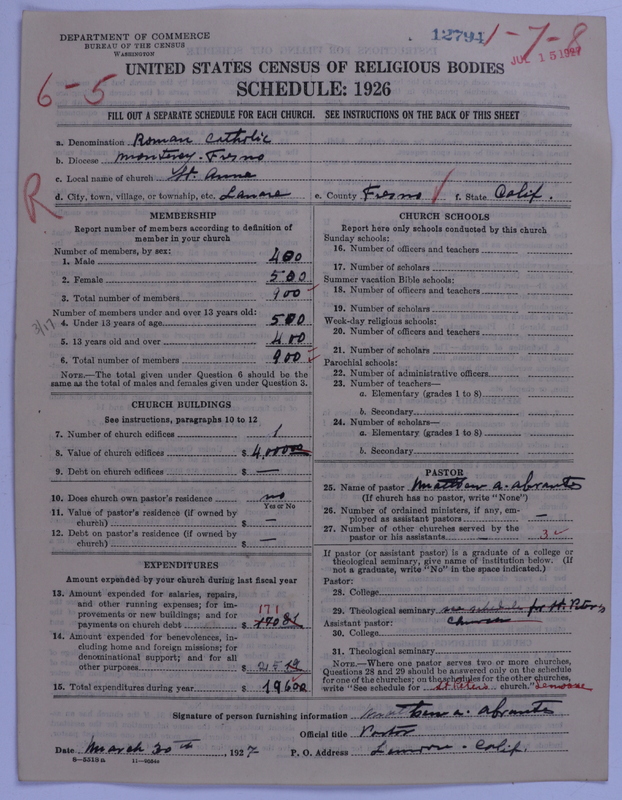 DEPARTMENT OF COMMERCE
BUREAU OF THE CENSUS
WASHINGTON
12794
1-7-8
JUL 15 1927
6-5
UNITED STATES CENSUS OF RELIGIOUS BODIES
SCHEDULE: 1926
FILL OUT A SEPARATE SCHEDULE FOR EACH CHURCH. SEE INSTRUCTIONS ON THE BACK OF THIS SHEET
a. Denomination Roman Catholic
b. Diocese Monterey-Fresno
c. Local name of church St. Anne
d. City, town, village, or township, etc. Lanare e. County Fresno f. State Calif.
R
MEMBERSHIP
Report number of members according to definition of
member in your church
Number of members, by sex:
1. Male 400
2. Female 500
3. Total number of members 900
Number of members under and over 13 years old:
3/17
4. Under 13 years of age 500
5. 13 years old and over 400
6. Total number of members 900
NOTE.—The total given under Question 6 should be
the same as the total of males and females given under Question 3.
CHURCH BUILDINGS
See instructions, paragraphs 10 to 12
7. Number of church edifices 1
8. Value of church edifices $ 4,000
9. Debt on church edifices $ —
10. Does church own pastor's residence no
Yes or No
11. Value of pastor's residence (if owned by
church) $ —
12. Debt on pastor's residence (if owned by
church) $ —
EXPENDITURES
Amount expended by your church during last fiscal year
13. Amount expended for salaries, repairs,
and other running expenses; for im-
provements or new buildings; and for
payments on church debt $
171
14. Amount expended for benevolences, in-
cluding home and foreign missions; for
denominational support; and for all
other purposes $
15. Total expenditures during year $ 196
CHURCH SCHOOLS
Report here only schools conducted by this church
Sunday schools:
16. Number of officers and teachers
17. Number of scholars
Summer vacation Bible schools:
18. Number of officers and teachers
19. Number of scholars
Week-day religious schools:
20. Number of officers and teachers
21. Number of scholars
Parochial schools:
22. Number of administrative officers
23. Number of teachers—
a. Elementary (grades 1 to 8)
b. Secondary
24. Number of scholars—
a. Elementary (grades 1 to 8)
b. Secondary
PASTOR
25. Name of pastor Matthew a. Abrantes
(If church has no pastor, write "None")
26. Number of ordained ministers, if any, em-
ployed as assistant pastors —
27. Number of other churches served by the
pastor or his assistants 3
If pastor (or assistant pastor) is a graduate of a college or
theological seminary, give name of institution below. (If
not a graduate, write "No" in the space indicated.)
Pastor:
28. College
29. Theological seminary see schedule for St. Peter's
Assistant pastor: Church
30. College
31. Theological seminary
NOTE.—Where one pastor serves two or more churches,
Questions 28 and 29 should be answered only on the schedule
for one of the churches; on the schedules for the other churches,
write "See schedule for St Peters church." Lemoore
Signature of person furnishing information Matthew a. Abrantes
Official title Pastor
Date March 30th, 1927 P. O. Address Lemoore - Calif.
8—5518a 11—9584a